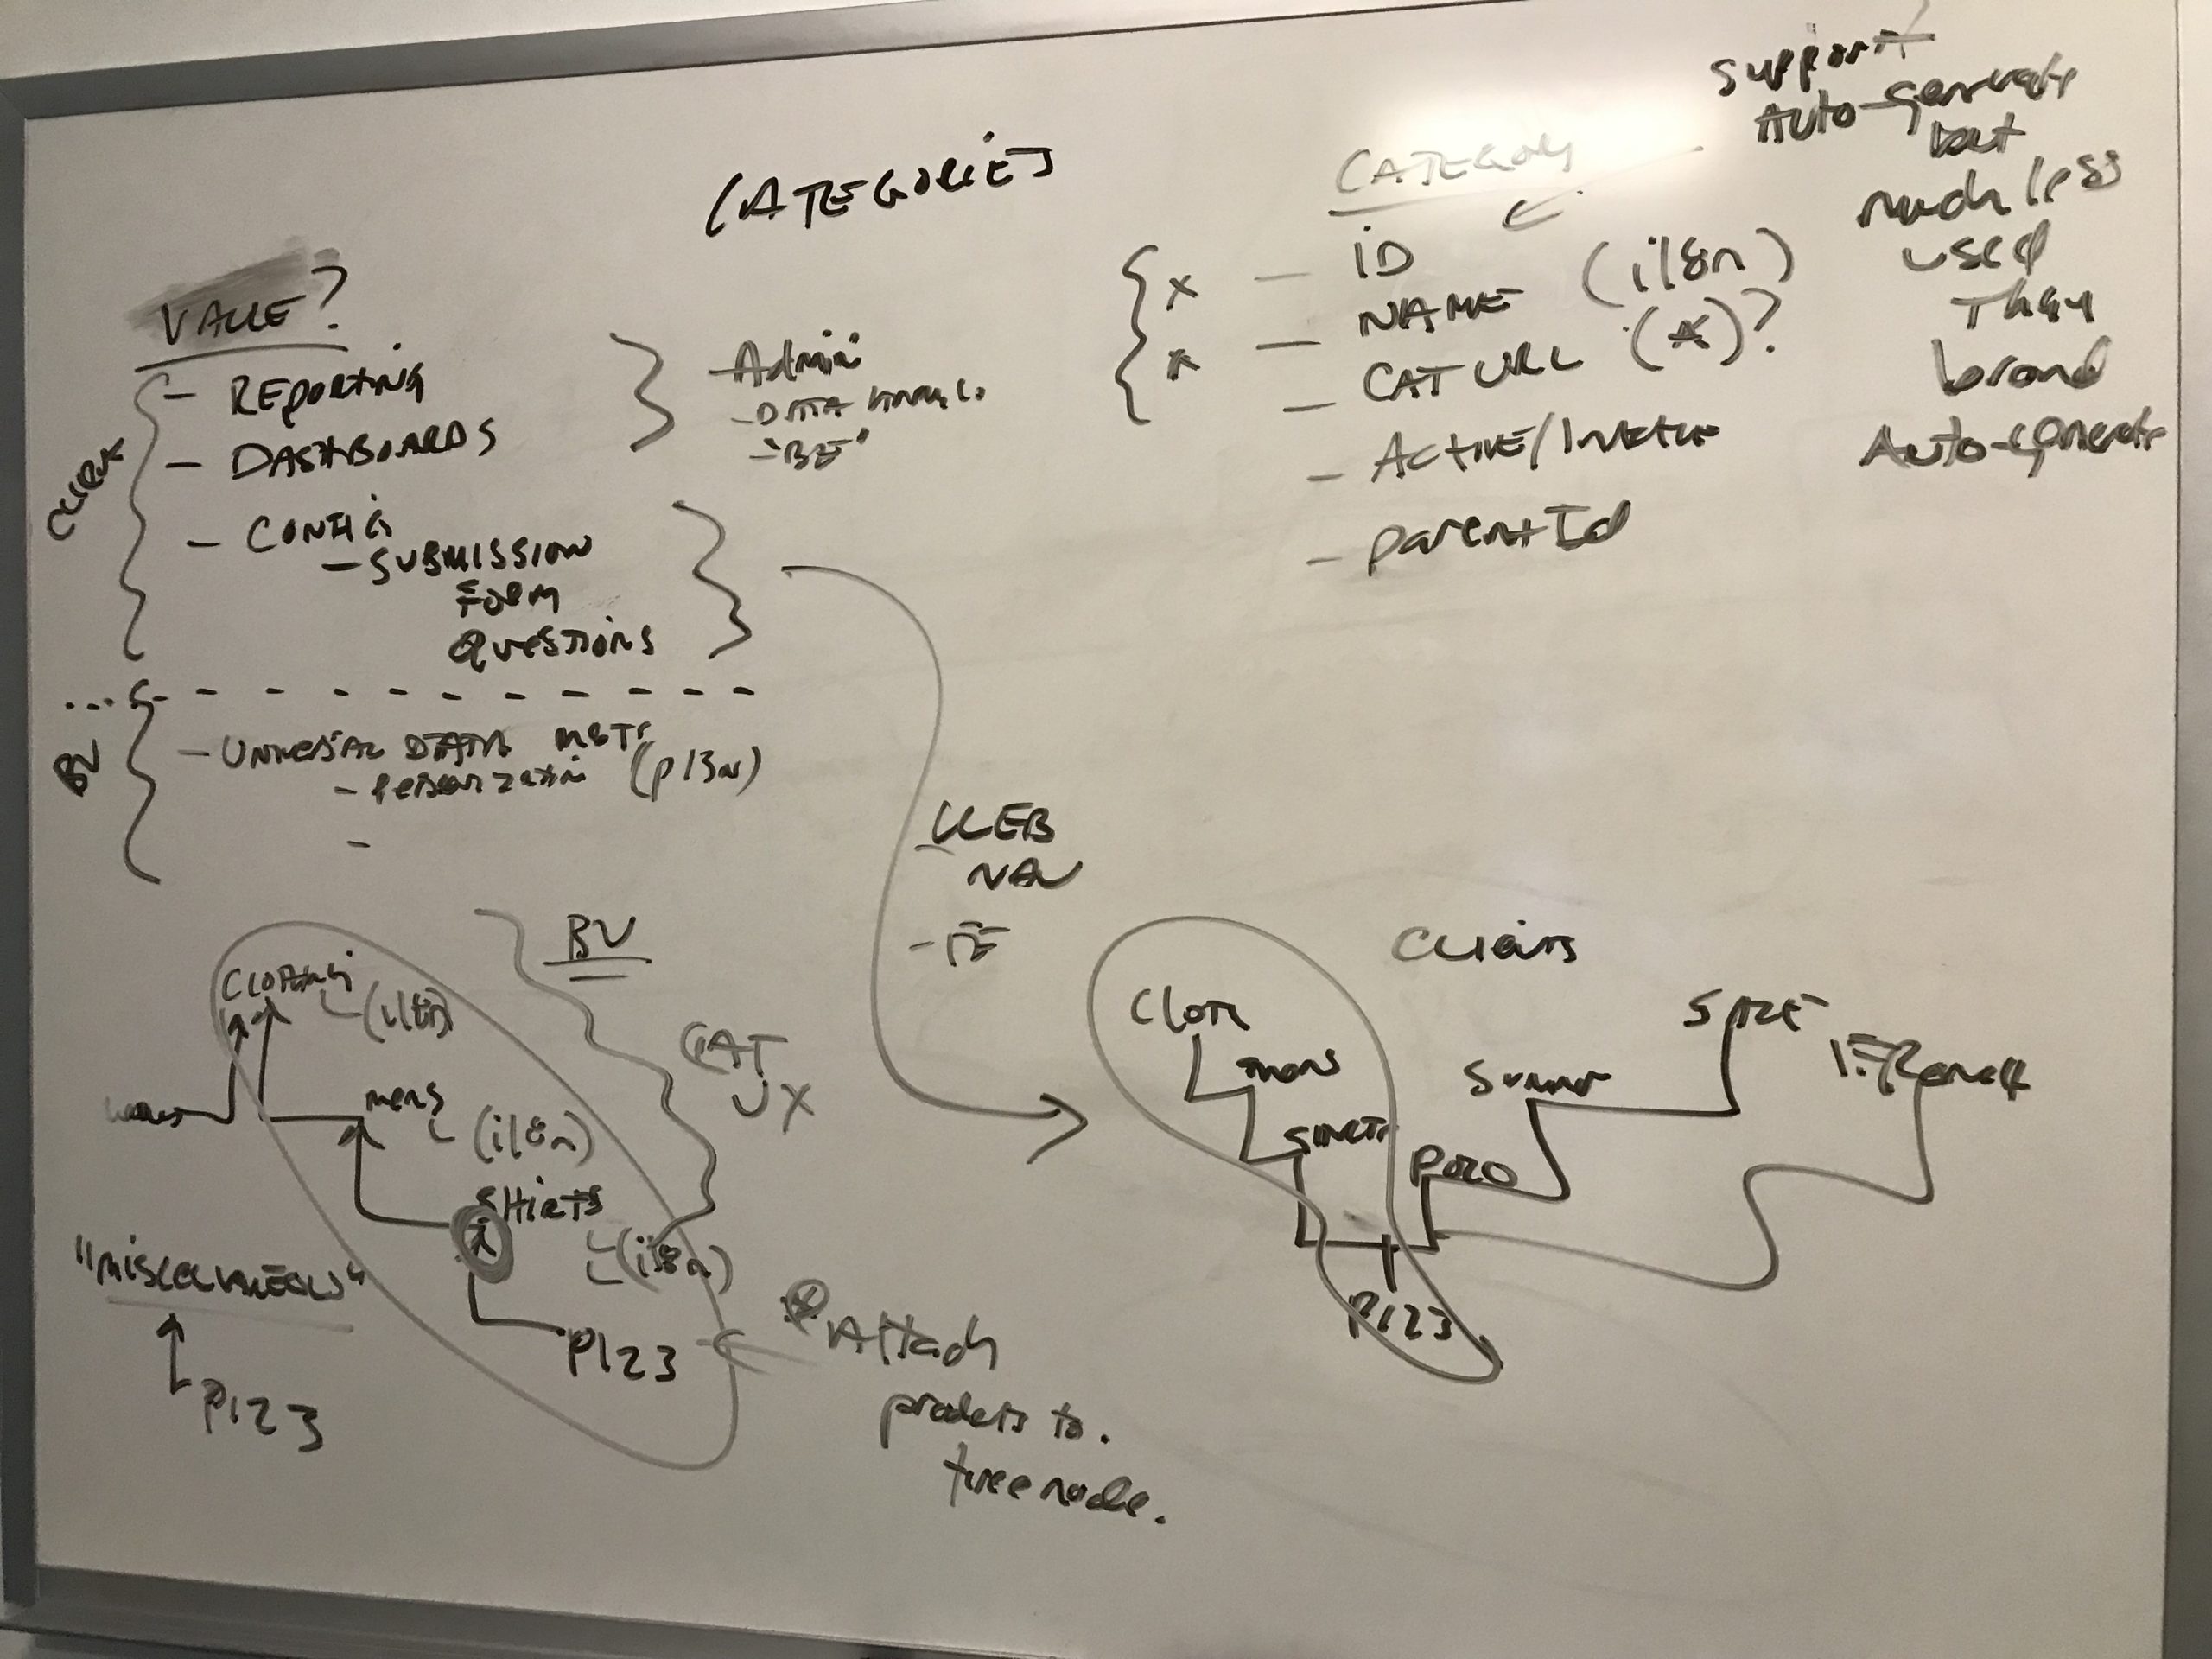 CATEGORIES
VALUE?
CLIENT
- REPORTING
- DASHBOARDS
- CONFIG
- SUBMISSION
FORM
QUESTIONS
- Admin
- DATA
- "BE"
BV
- UNIVERSAL DATA
- Personalization (p13n)
-
CATEGORY
- ID
- NAME (i18n)
- CAT URL (*)?
- ACTIVE/INACTIVE
- parentId
x
*
Support
Auto-generate
but
much less
used
Than
brand
Auto-generate
- WEB
NAV
- FE
BV
CLOTHING
(i18n)
mens
(i18n)
SHIRTS
(i18n)
P123
CAT
UX
"MISCELLANEOUS"
P123
* Attach
products to
tree node.
CLIENTS
Cloth
mens
SHIRTS
P123
POLO
Summer
SALE